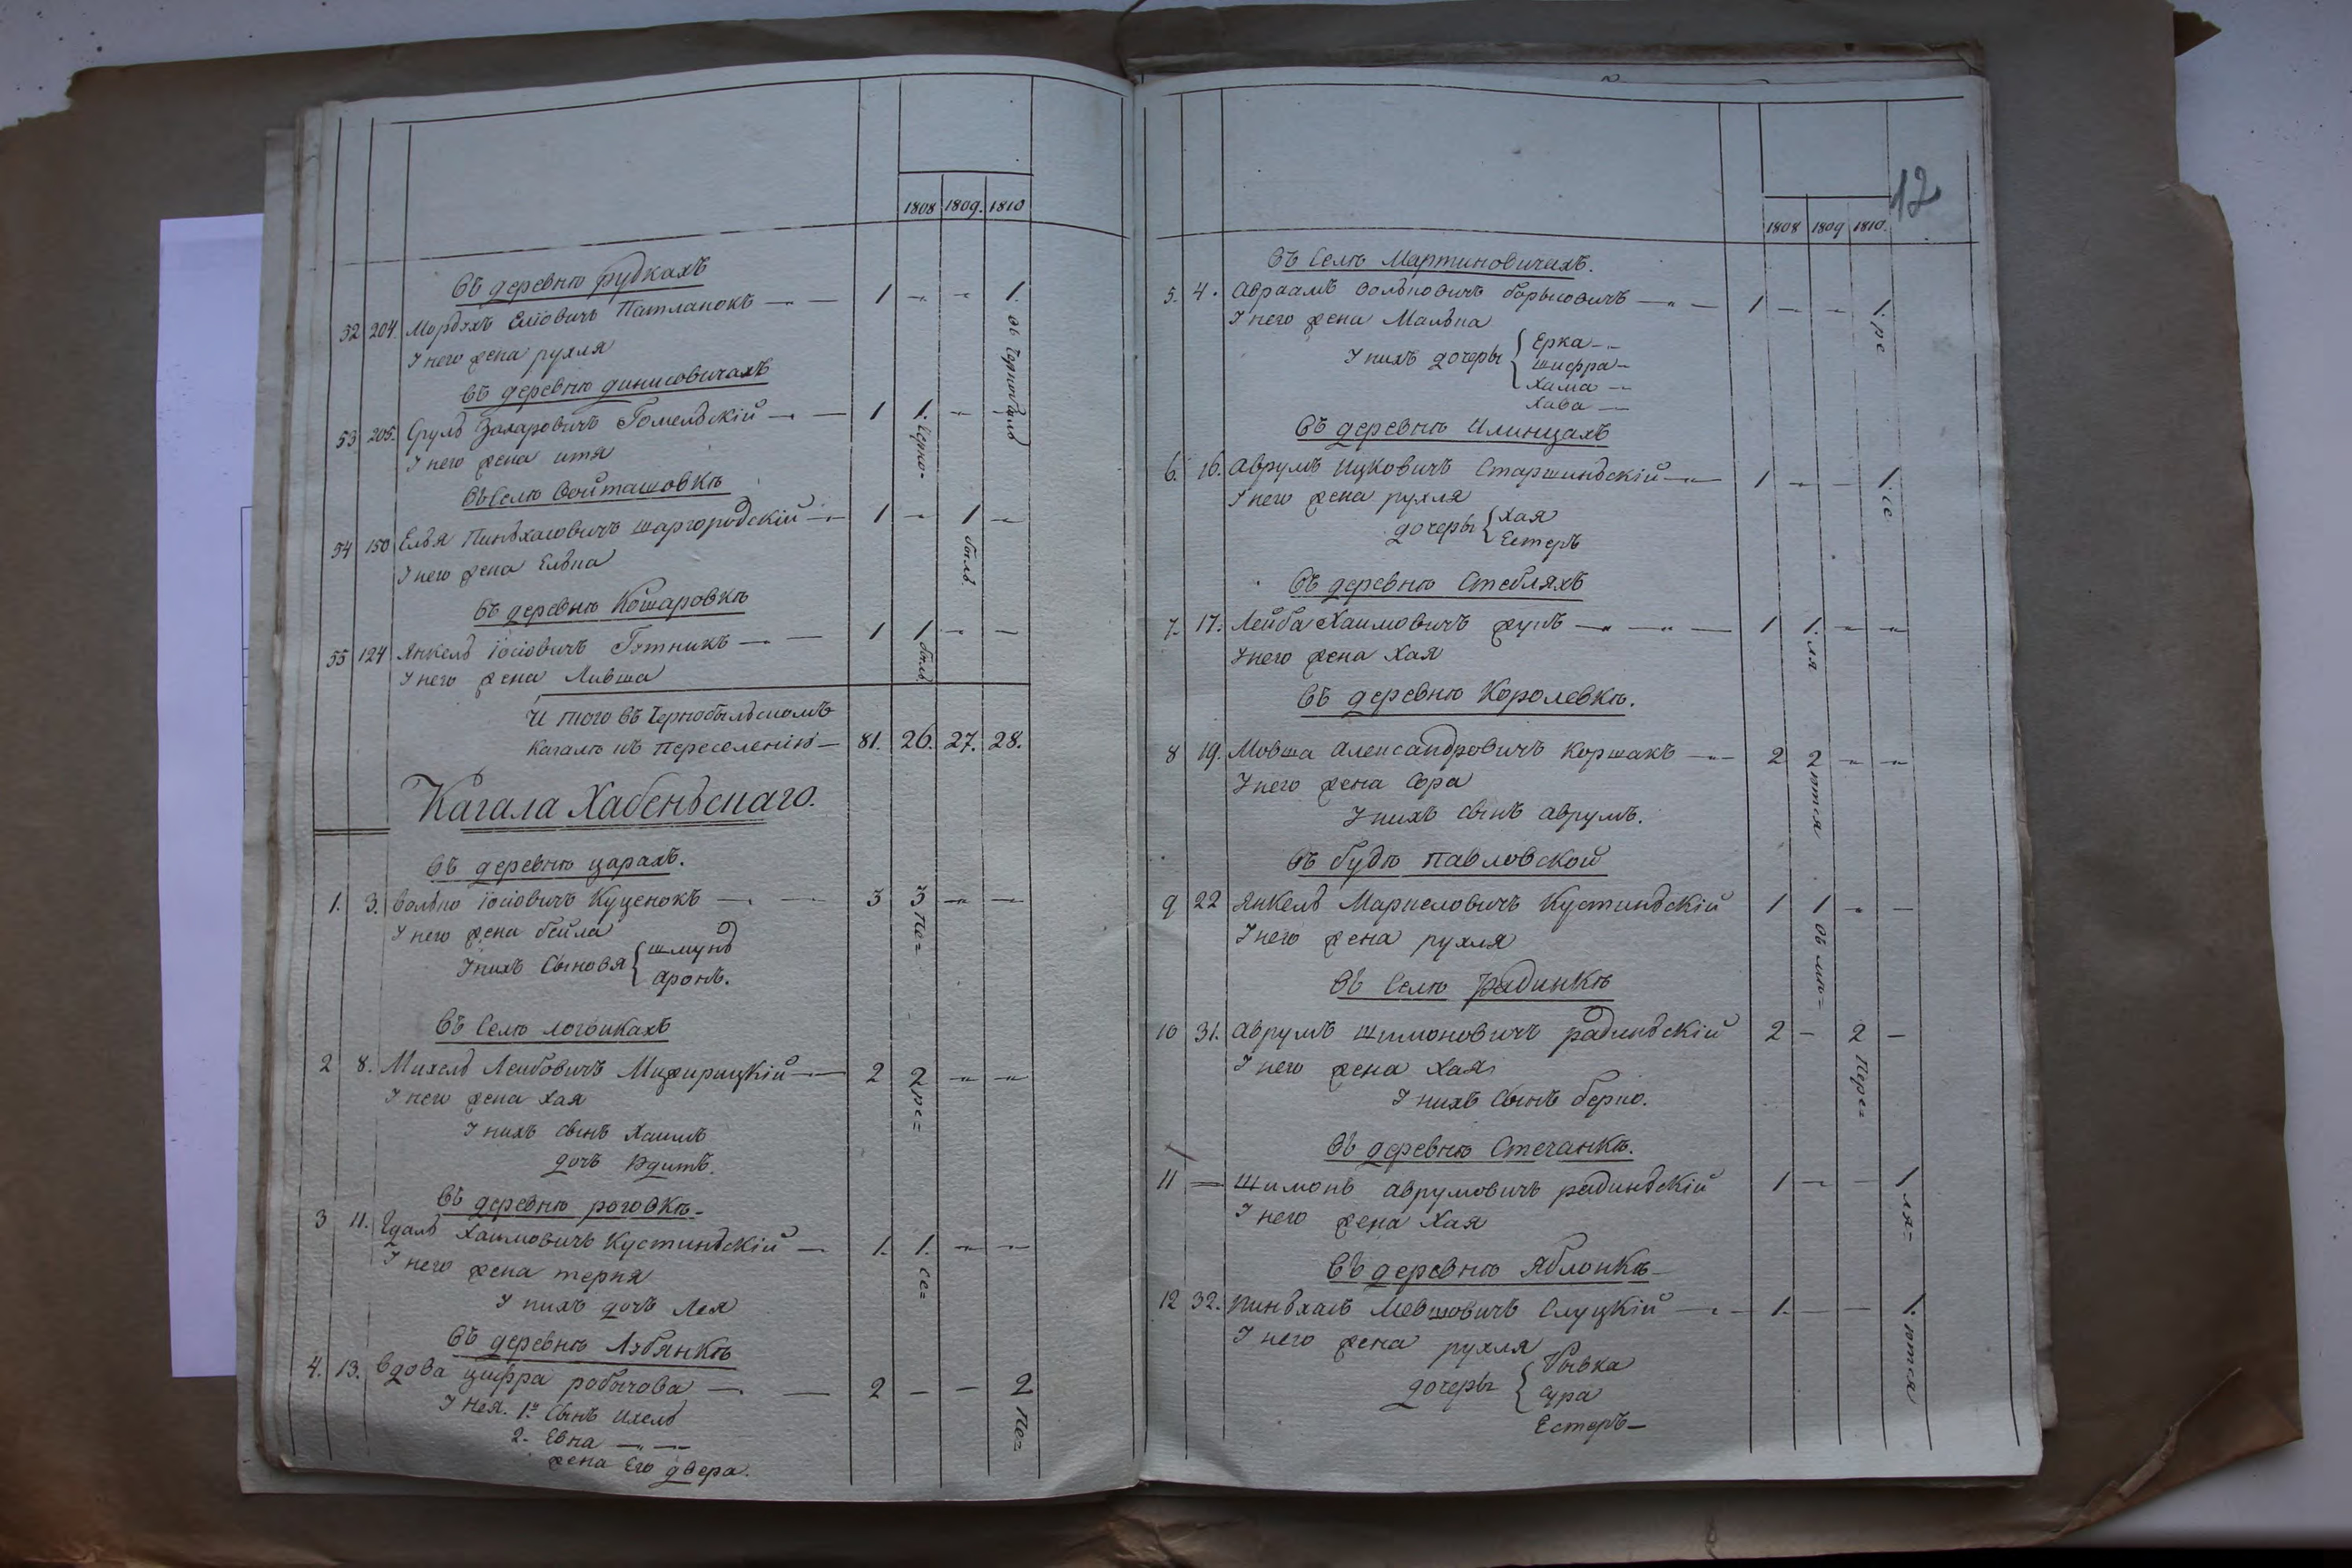 1808 1809. 1810
Въ деревнѣ рудкахъ
52 204. Мордэхъ Еліовичъ Патланокъ 1 1.
У него жена рухля
въ Чернобылѣ
Въ деревнѣ динисовичахъ
53 205. Сруль Захаровичъ Гомельскій 1 1.
У него жена итя
Въ Селѣ Войташовкѣ
54 150 Елья Пиньхасовичъ шаргородскій 1 1
У него жена Ельна
Въ деревнѣ Кошаровкѣ
55 124 Янкель Іосіовичъ Гэтникъ 1 1
У него жена Ливша
И того въ Чернобыльскомъ
кагалѣ къ переселенію 81. 26. 27. 28.
Кагала Хабеньскаго.
Въ деревнѣ царахъ.
1. 3. Волько Іосіовичъ Куценокъ 3 3
У него жена бейла
Пе=
У нихъ Сыновя шмунь
аронъ.
Въ Селѣ
2 8. Михель Леибовичъ Мижирицкій 2 2
У него жена хая
ре=
У нихъ сынъ Хаимъ
дочъ Юдитъ.
Въ деревнѣ роговкѣ
3 11. Гдаль Хаимовичъ Кустинскій 1. 1.
У него жена терня
се=
У нихъ дочъ Лея
Въ деревнѣ Лэбянкѣ
4. 13. Вдова цифра робычова 2 2
У Нея. 1й Сынъ Ихель
Пе=
2. Евна
жена Его двера.
12
1808 1809 1810.
Въ Селѣ Мартиновичахъ.
5. 4. Авраамъ Вольковичъ борьковичъ 1 1.
У него жена Малька
ре
У нихъ дочеры Ерка
шифра
Хама
Хава
Въ деревнѣ Илинцахъ
6. 16. Аврумъ Ицковичъ Старшинскій 1 1.
У него жена рухля
се
дочеры Хая
Естеръ
Въ деревнѣ Стебляхъ
7. 17. Лейба Хаимовичъ жукъ 1 1.
У него жена Хая
ля
Въ деревнѣ Королевкѣ.
8 19. Мовша Александровичъ Коршакъ 2 2
У него жена Сора
ются
У нихъ сынъ аврумъ.
Въ будѣ павловской
9 22 Янкель Маркеловичъ Кустинскій 1 1
У него жена рухля
Въ Селѣ Радинкѣ
10 31. Аврумъ Шимоновичъ радинскій 2 2
У него жена Хая
Пере=
У нихъ Сынъ берко.
Въ деревнѣ Стечанкѣ.
11 Шимонъ аврумовичъ радинскій 1 1
У него жена Хая
ля=
Въ деревнѣ Яблонкѣ
12 32. Пиньхасъ Мевшовичъ Слуцкій 1. 1.
У него жена рухля
ются
дочеры Рывка
Сура
Естеръ